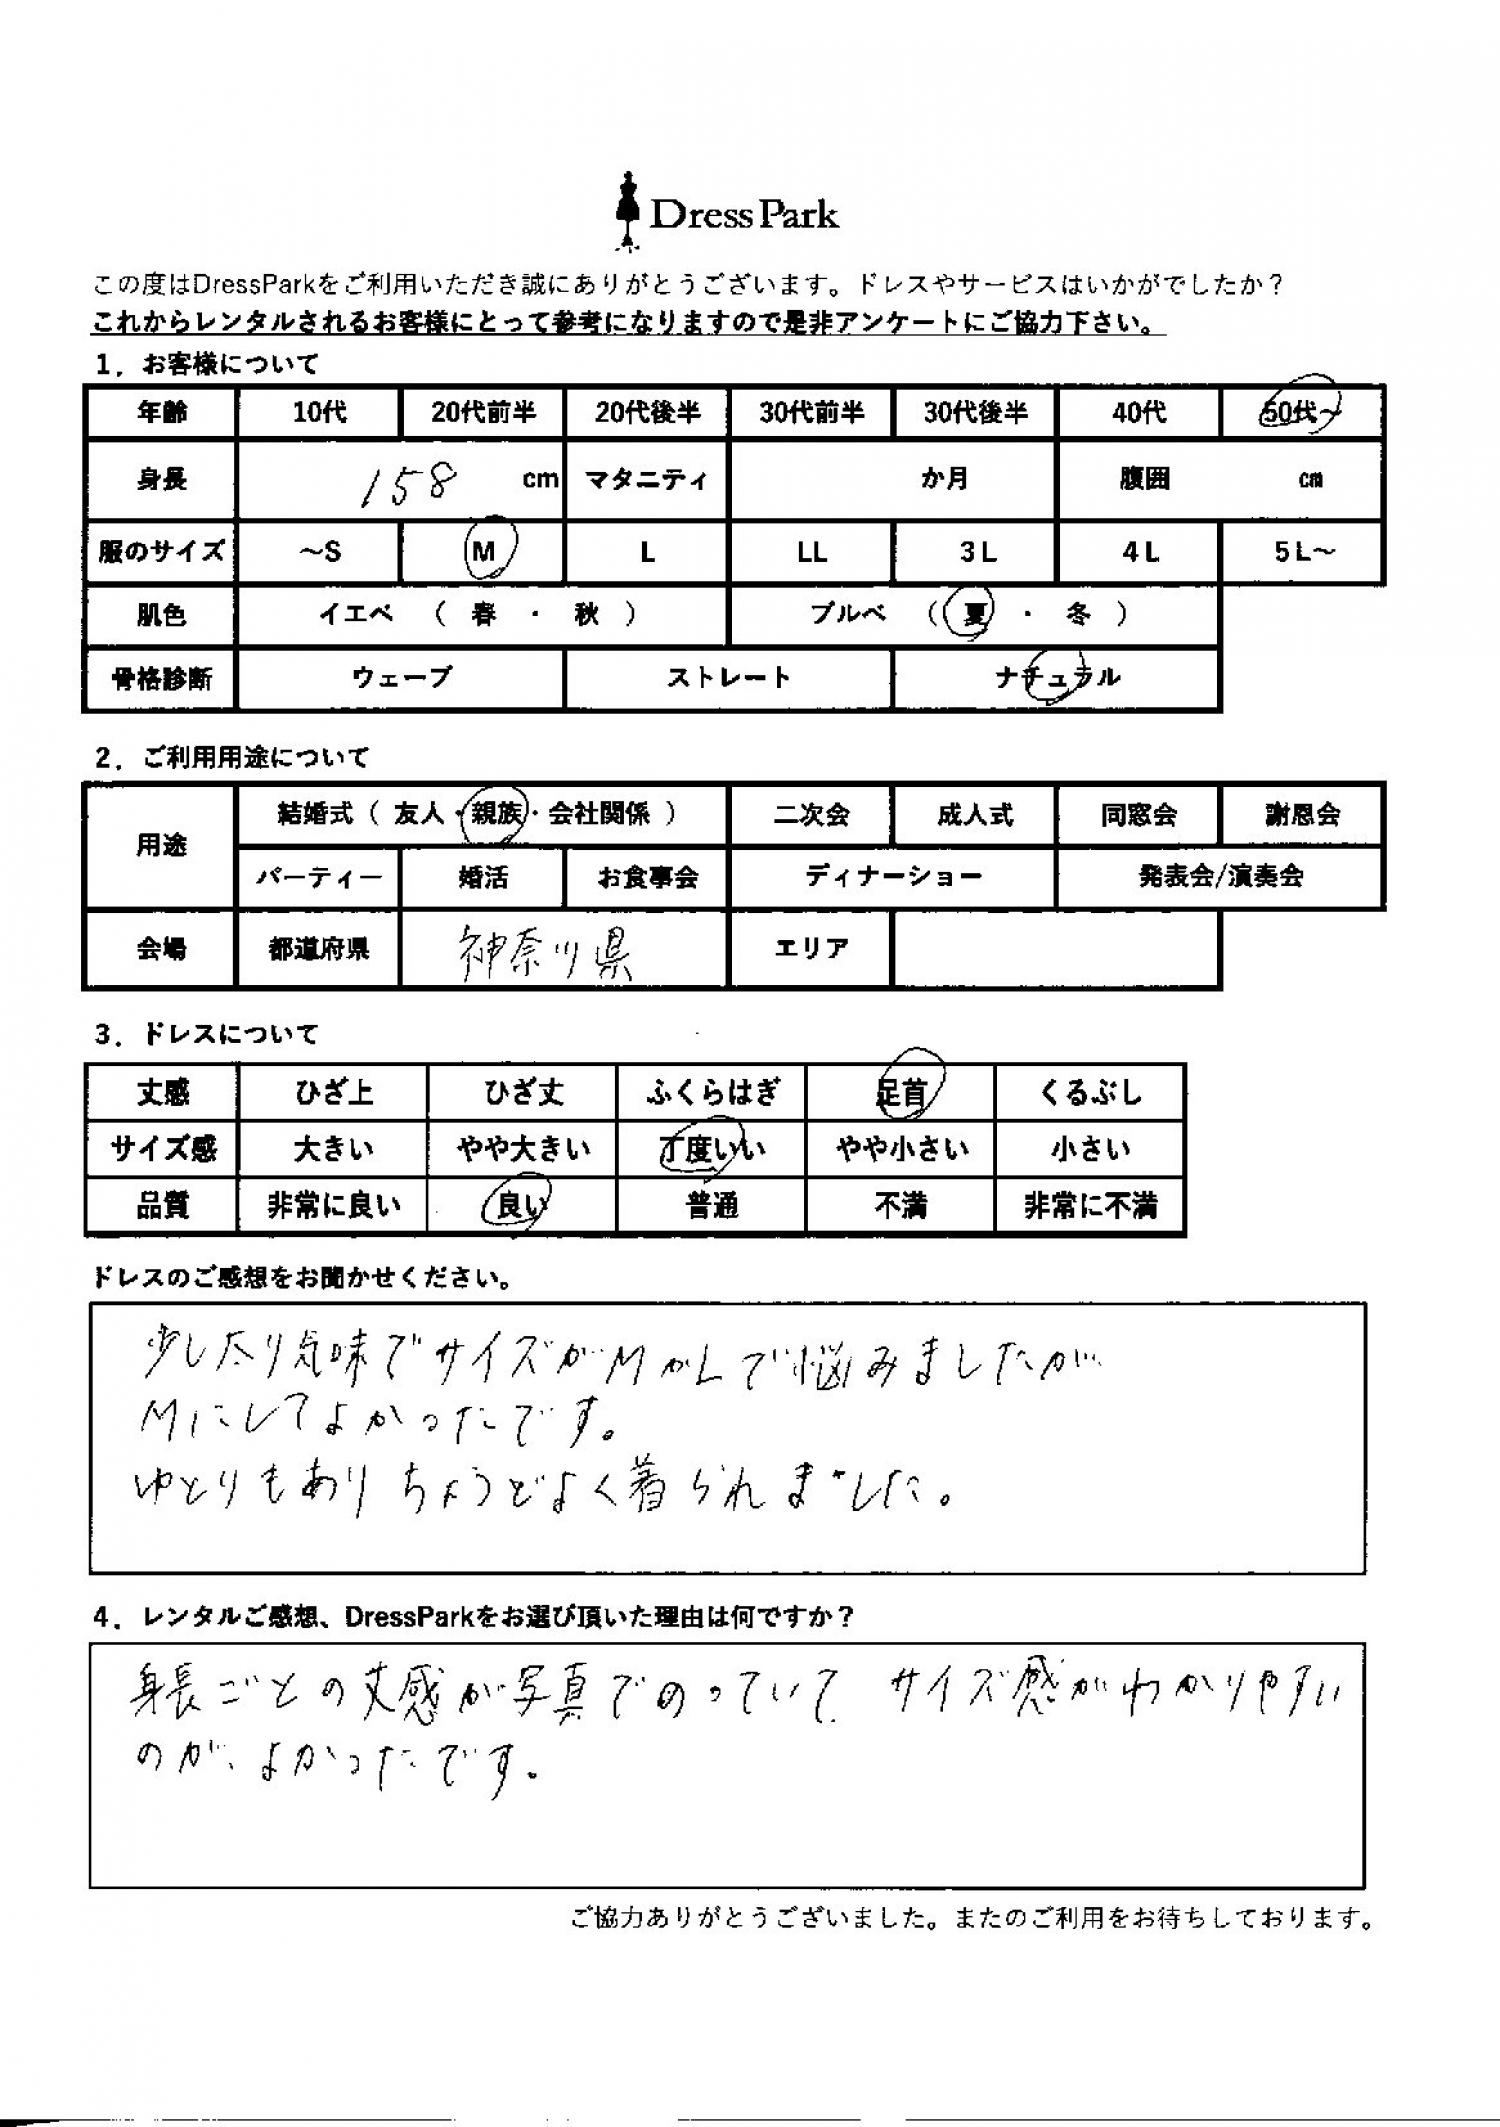 Dress Park
この度はDressParkをご利用いただき誠にありがとうございます。ドレスやサービスはいかがでしたか？
これからレンタルされるお客様にとって参考になりますので是非アンケートにご協力下さい。
1．お客様について
年齢 10代 20代前半 20代後半 30代前半 30代後半 40代 50代～
身長 158 cm マタニティ か月 腹囲 cm
服のサイズ ～S M L LL 3L 4L 5L～
肌色 イエベ （ 春 ・ 秋 ） ブルベ （ 夏 ・ 冬 ）
骨格診断 ウェーブ ストレート ナチュラル
2．ご利用用途について
用途 結婚式（ 友人・親族・会社関係 ） 二次会 成人式 同窓会 謝恩会
パーティー 婚活 お食事会 ディナーショー 発表会/演奏会
会場 都道府県 神奈川県 エリア
3．ドレスについて
丈感 ひざ上 ひざ丈 ふくらはぎ 足首 くるぶし
サイズ感 大きい やや大きい 丁度いい やや小さい 小さい
品質 非常に良い 良い 普通 不満 非常に不満
ドレスのご感想をお聞かせください。
少し太り気味でサイズがMかLで悩みましたが
Mにしてよかったです。
ゆとりもありちょうどよく着られました。
4．レンタルご感想、DressParkをお選び頂いた理由は何ですか？
身長ごとの丈感が写真でのっていて サイズ感がわかりやすい
のが、よかったです。
ご協力ありがとうございました。またのご利用をお待ちしております。